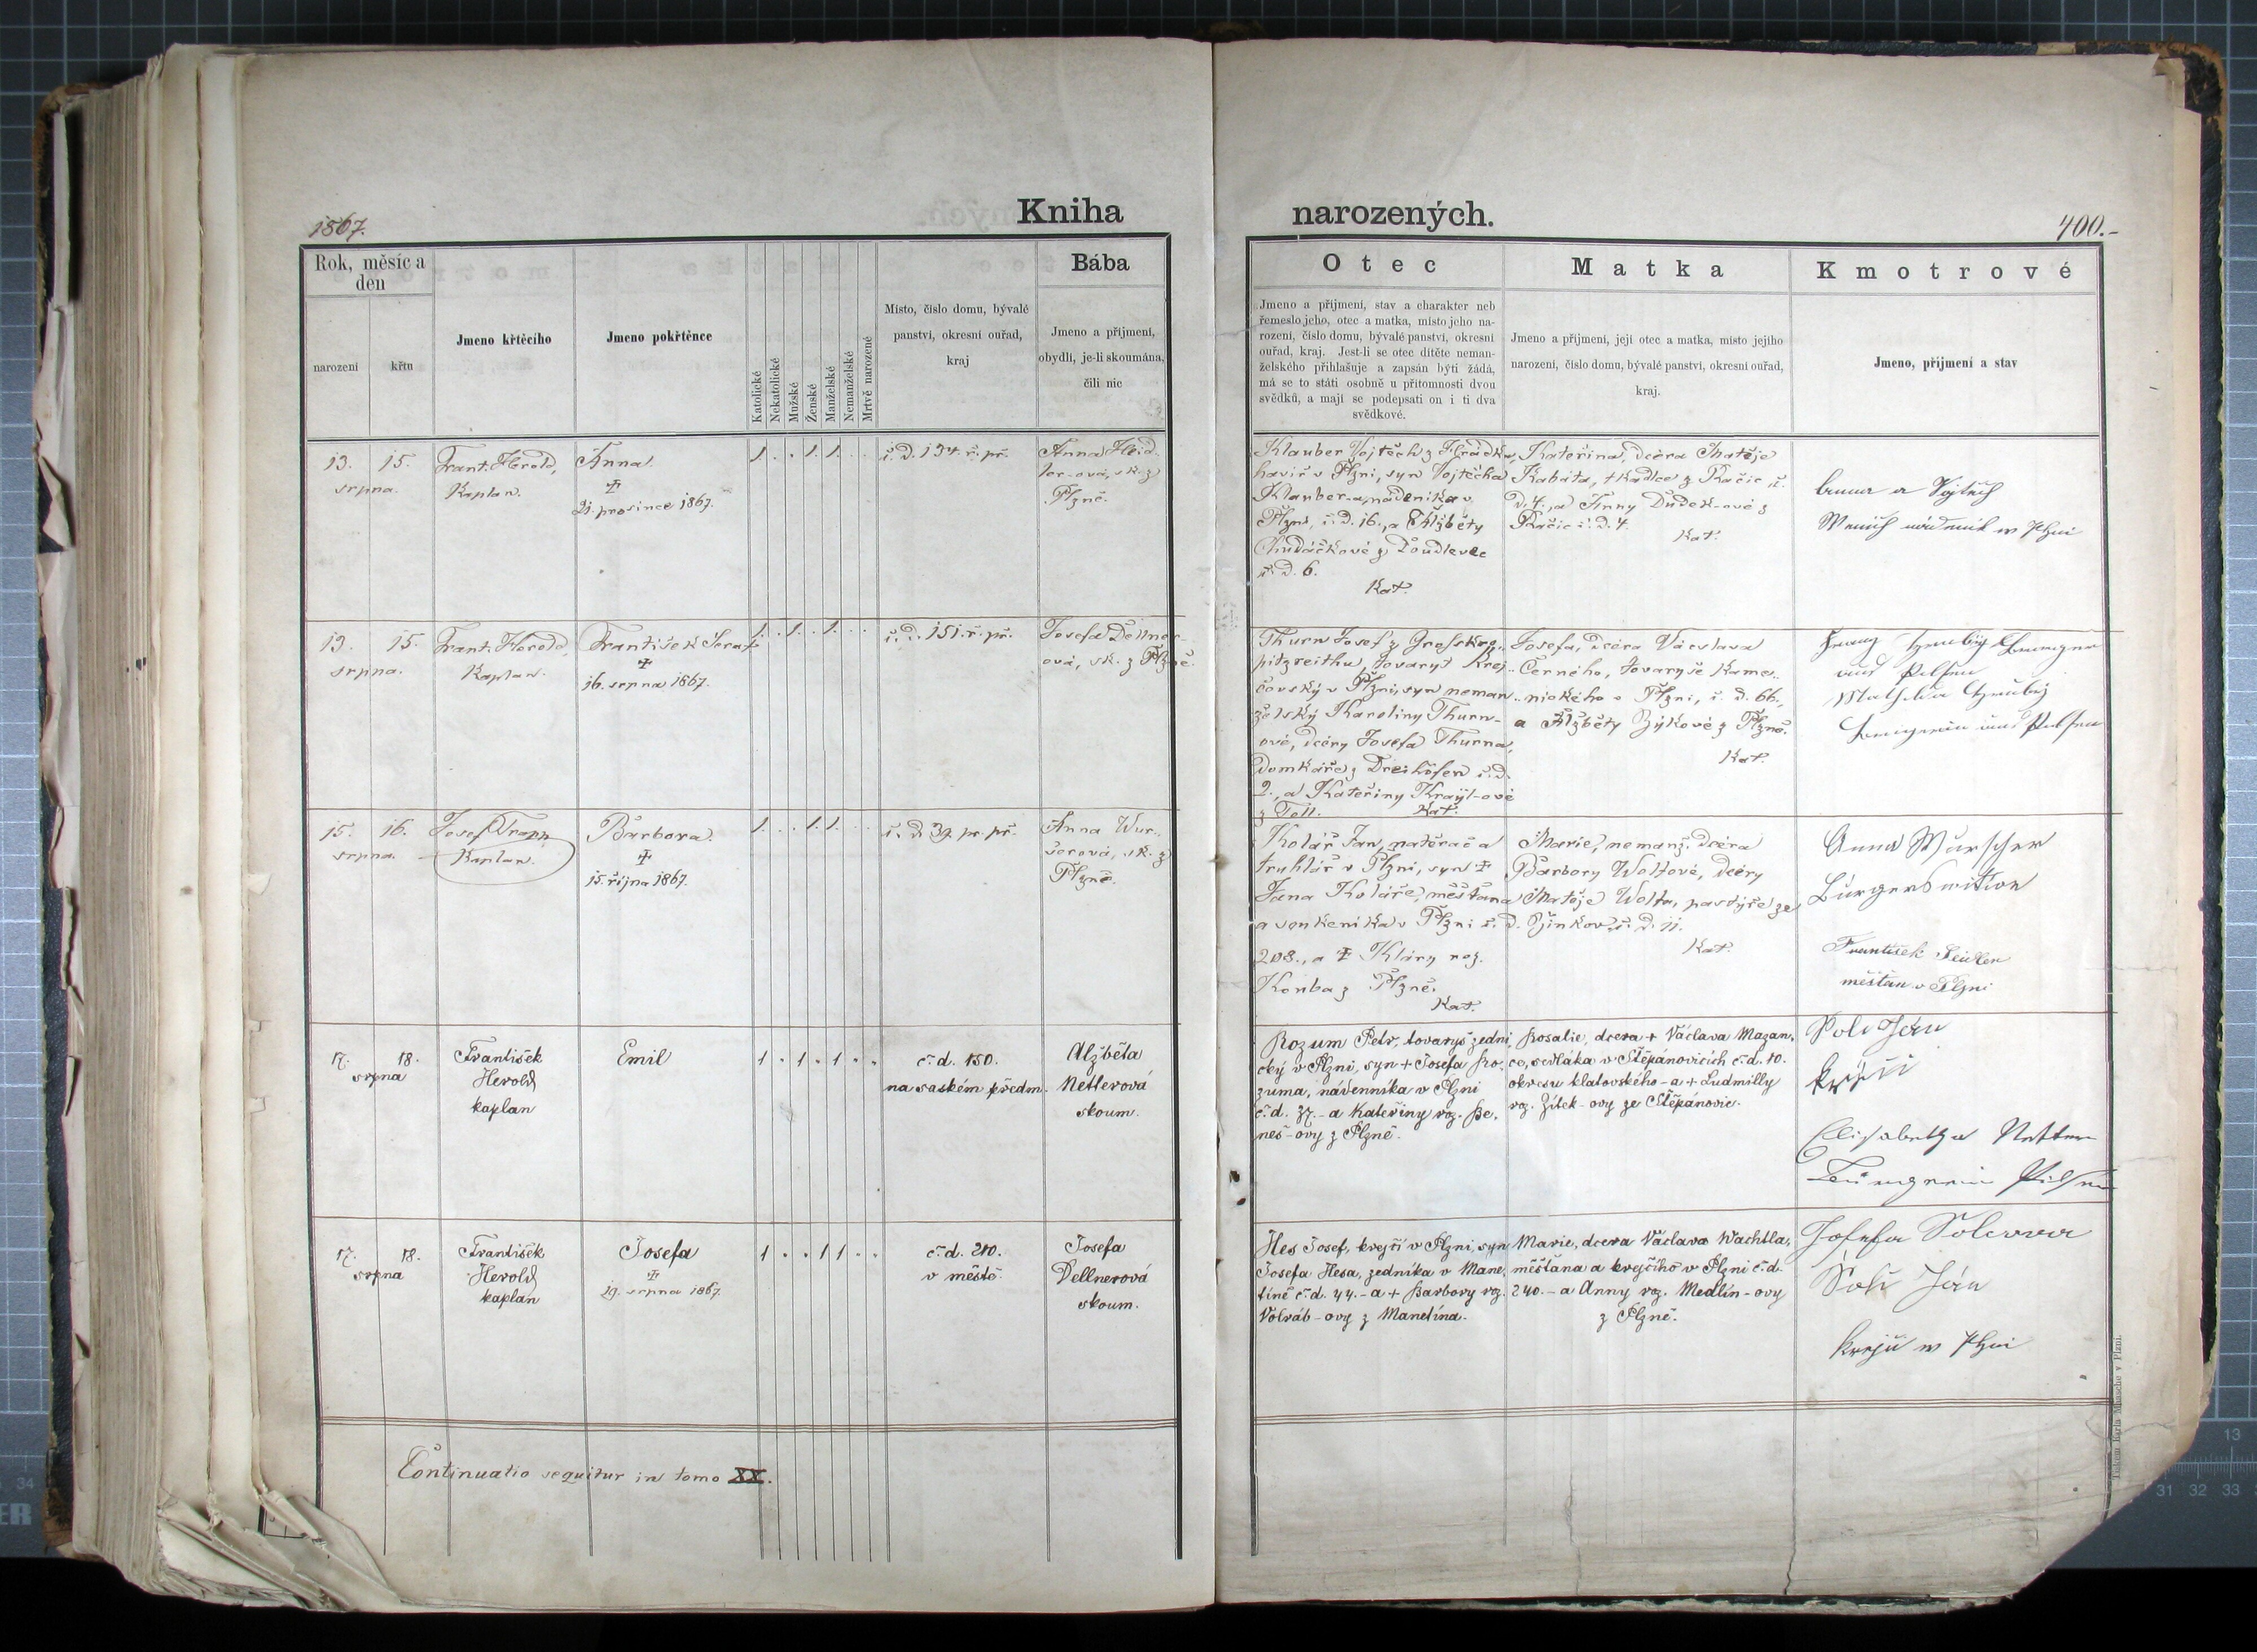 1867.
Kniha
narozených.
400.-
Rok, měsíc a
den
narození
křtu
Jmeno křtěcího
Jmeno pokřtěnce
Katolické
Nekatolické
Mužské
Ženské
Manželské
Nemanželské
Mrtvě narozené
Místo, číslo domu, bývalé
panství, okresní ouřad,
kraj
Bába
Jmeno a příjmení,
obydlí, je-li skoumána,
čili nic
Otec
Jmeno a příjmení, stav a charakter neb
řemeslo jeho, otec a matka, místo jeho na-
rození, číslo domu, bývalé panství, okresní
ouřad, kraj. Jest-li se otec dítěte neman-
želského přihlašuje a zapsán býti žádá,
má se to státi osobně u přítomnosti dvou
svědků, a mají se podepsati on i ti dva
svědkové.
Matka
Jmeno a příjmení, její otec a matka, místo jejího
narození, číslo domu, bývalé panství, okresní ouřad,
kraj.
Kmotrové
Jmeno, příjmení a stav
13. 15.
srpna.
Frant. Herold,
Kaplan.
Anna.
21. prosince 1867.
1. . . 1. 1. . .
č. d. 134. ř. př.
Anna Heid-
ler-ová, sk. z
Plzně.
Klauber Vojtěch z Hrádku,
havíř v Plzni, syn Vojtěcha
Klauber-a, nádeníka v
Plzni, č. d. 16., a Alžběty
Chudáčkové z Doudlevec
č. d. 6.
Kat.
Kateřina, dcera Matěje
Kabáta, † kadlce z Račic, č.
d. 4., a Anny Dudek-ové z
Račic č. d. 4.
Kat.
Anna a Vojtěch
nádeník w Plzni
13. 15.
srpna.
Frant. Herold,
Kaplan.
František Seraf.
16. srpna 1867.
1. . 1. . 1. . .
č. d. 151. ř. př.
Josefa Dellner-
ová, sk. z Plzně.
Thurn Josef z
tovaryš krej-
čovský v Plzni, syn neman-
želský Karoliny Thurn-
ové, dcery Josefa Thurna,
domkáře z Dreihöfen č. d.
2., a Kateřiny Krayl-ové
Kat.
Josefa, dcera Václava
Černého, tovaryše kame-
nického v Plzni, č. d. 66.,
a Alžběty Zýkové z Plzně.
Kat.
aus Pilsen
15. 16.
srpna.
Josef Trapp,
Kaplan.
Barbora.
15. října 1867.
1. . . 1. 1. . .
č. d. 39. pr. př.
Anna Wur-
šerová, sk. z
Plzně.
Kolář Jan, natěrač a
truhlář v Plzni, syn †
Jana Koláře, měšťana
a soukeníka v Plzni č. d.
208., a † Kláry roz.
Korba z Plzně.
Kat.
Marie, nemanž. dcera
Barbory Woltové, dcery
Matěje Wolta, pastýře ze
Žinkov, č. d. 11.
Kat.
Anna Wurscher
Bürgers
František
měšťan v Plzni
17. 18.
srpna
František
Herold
kaplan
Emil
1 . 1 . 1 . .
č. d. 150.
na saském předm.
Alžběta
Netterová
skoum.
Rozum Petr, tovaryš zedni-
cký v Plzni, syn + Josefa Ro-
zuma, nádenníka v Plzni
č. d. 37. - a Kateřiny roz. Be-
neš-ovy z Plzně.
Rosalie, dcera + Václava Mazan-
ce, sedláka v Štěpanovicích č. d. 10.
okresu klatovského - a + Ludmilly
roz. Žítek-ovy ze Štěpánovic.
Elisabetha Netter
Pilsen
17. 18.
srpna
František
Herold
kaplan
Josefa
19. srpna 1867.
1 . . 1 1 . .
č. d. 210.
v městě.
Josefa
Dellnerová
skoum.
Hes Josef, krejčí v Plzni, syn
Josefa Hesa, zedníka v Mane-
tíně č. d. 44. - a + Barbory roz.
Volráb-ovy z Manetína.
Marie, dcera Václava Wachtla,
měšťana a krejčího v Plzni č. d.
240. - a Anny roz. Medlín-ovy
z Plzně.
Josefa
Krejčí w Plzni
Continuatio sequitur in tomo XX.
Tiskem Karla Maasche v Plzni.